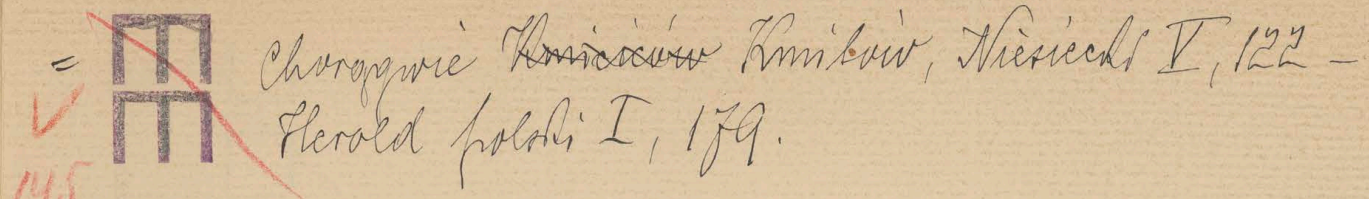 = Chorągwie Kmiciców Kmitów, Niesiecki V, 122 –
Herold polski I, 179.
145